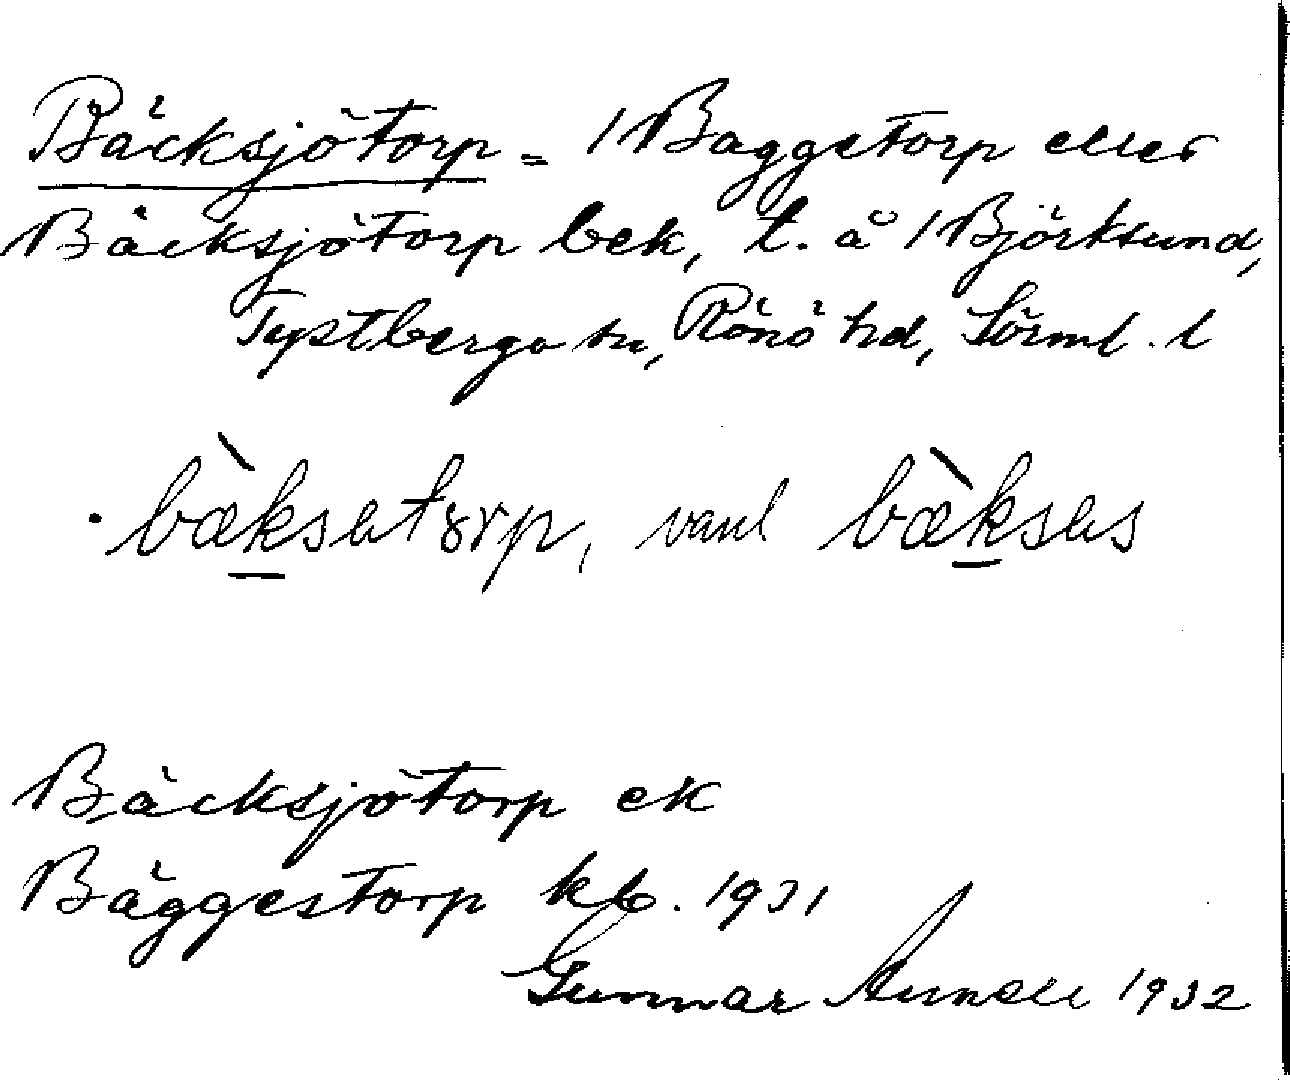 Bäcksjötorp = / Baggetorp eller
Bäcksjötorp bek, t. å / Björksund,
Tystberga sn, Rönö hd, Sörml. l
bæksetorp, vanl bækses
Bäcksjötorp ek
Bäggestorp kb. 1931
Gunnar 1932